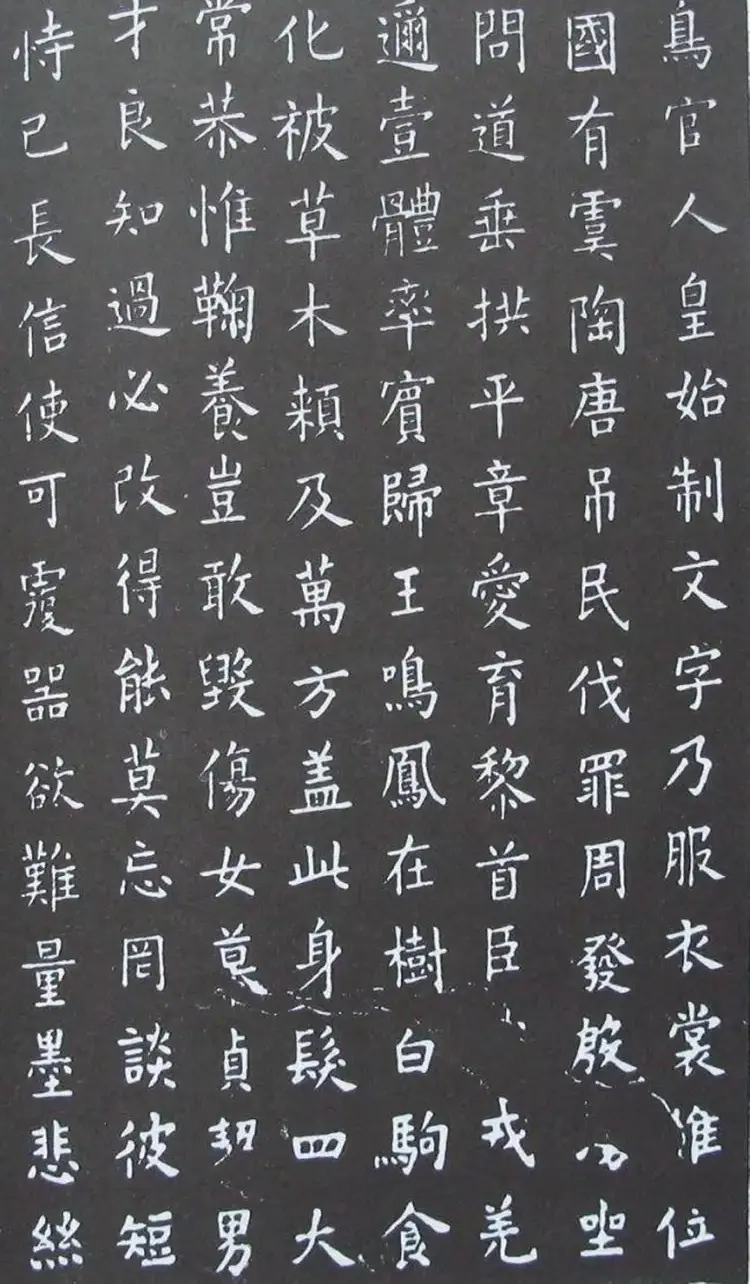 鳥官人皇始制文字乃服衣裳推位
國有虞陶唐吊民伐罪周發殷坐
問道垂拱平章愛育黎首臣戎羌
邇壹體率賓歸王鳴鳳在樹白駒食
化被草木頼及萬方盖此身髮四大
常恭惟鞠養豈敢毀傷女慕貞絜男
才良知過必改得能莫忘罔談彼短
恃己長信使可覆器欲難量墨悲絲